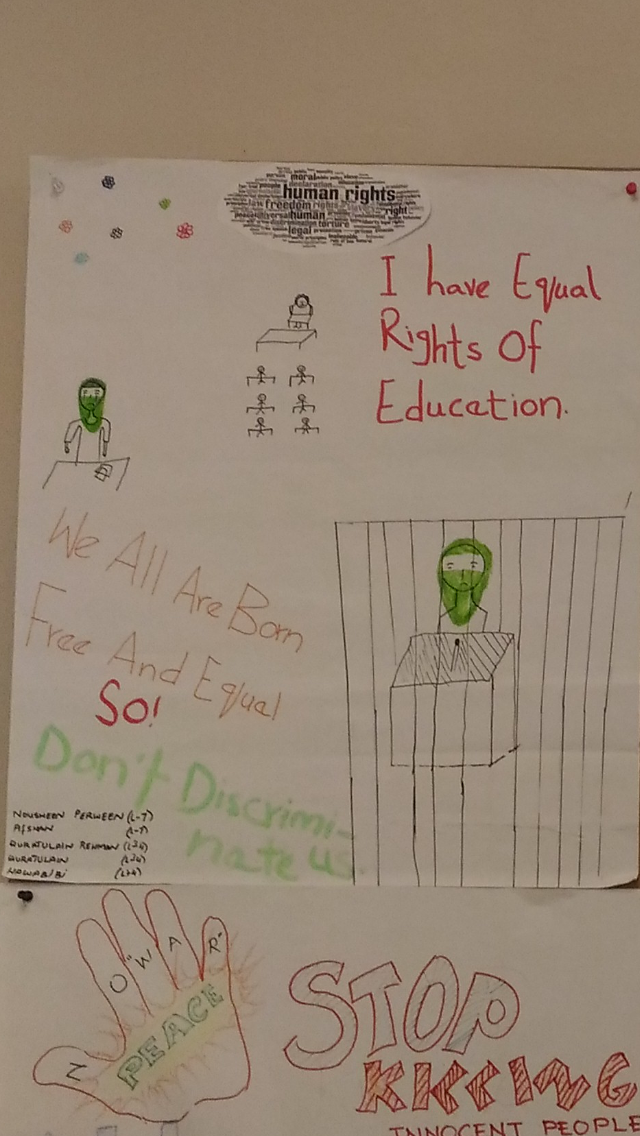 moral
human rights
freedom
right
human
torture
legal
I have Equal
Rights Of
Education.
We All Are Born
Free And Equal
So!
Don't Discrimi-
nate us.
NOUSHEEN PERWEEN (L-7)
AFSHAN (L-7)
QURATULAIN REHMAN
QURATULAIN
NO WAR
PEACE
STOP
KILLING
INNOCENT PEOPLE